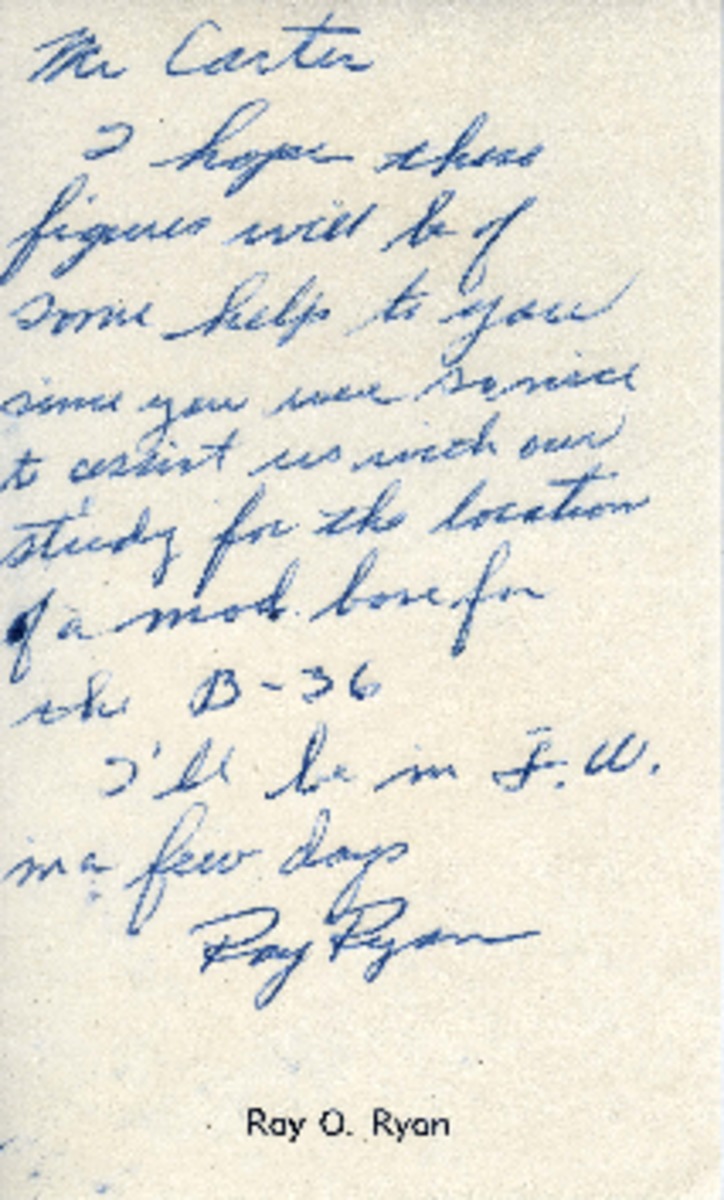 Mr Carter
I hope these
figures will be of
some help to you
since you were so nice
to assist us with our
study for the location
of a mod. base for
the B-36
I'll be in F.W.
in a few days
Ray Ryan
Ray O. Ryan